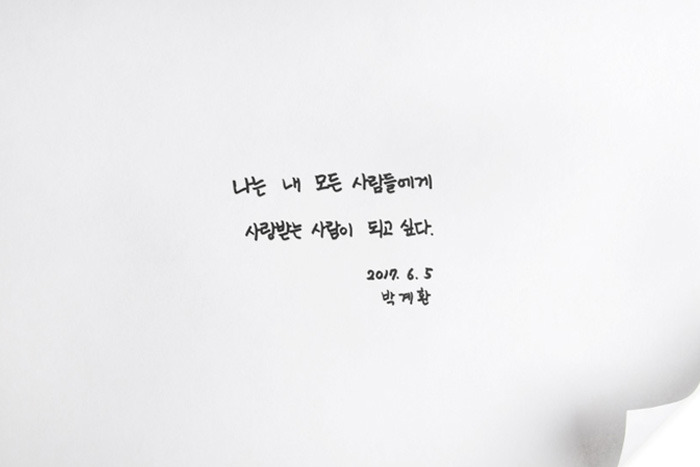 나는 내 모든 사람들에게
사랑받는 사람이 되고 싶다.
2017. 6. 5
박계환